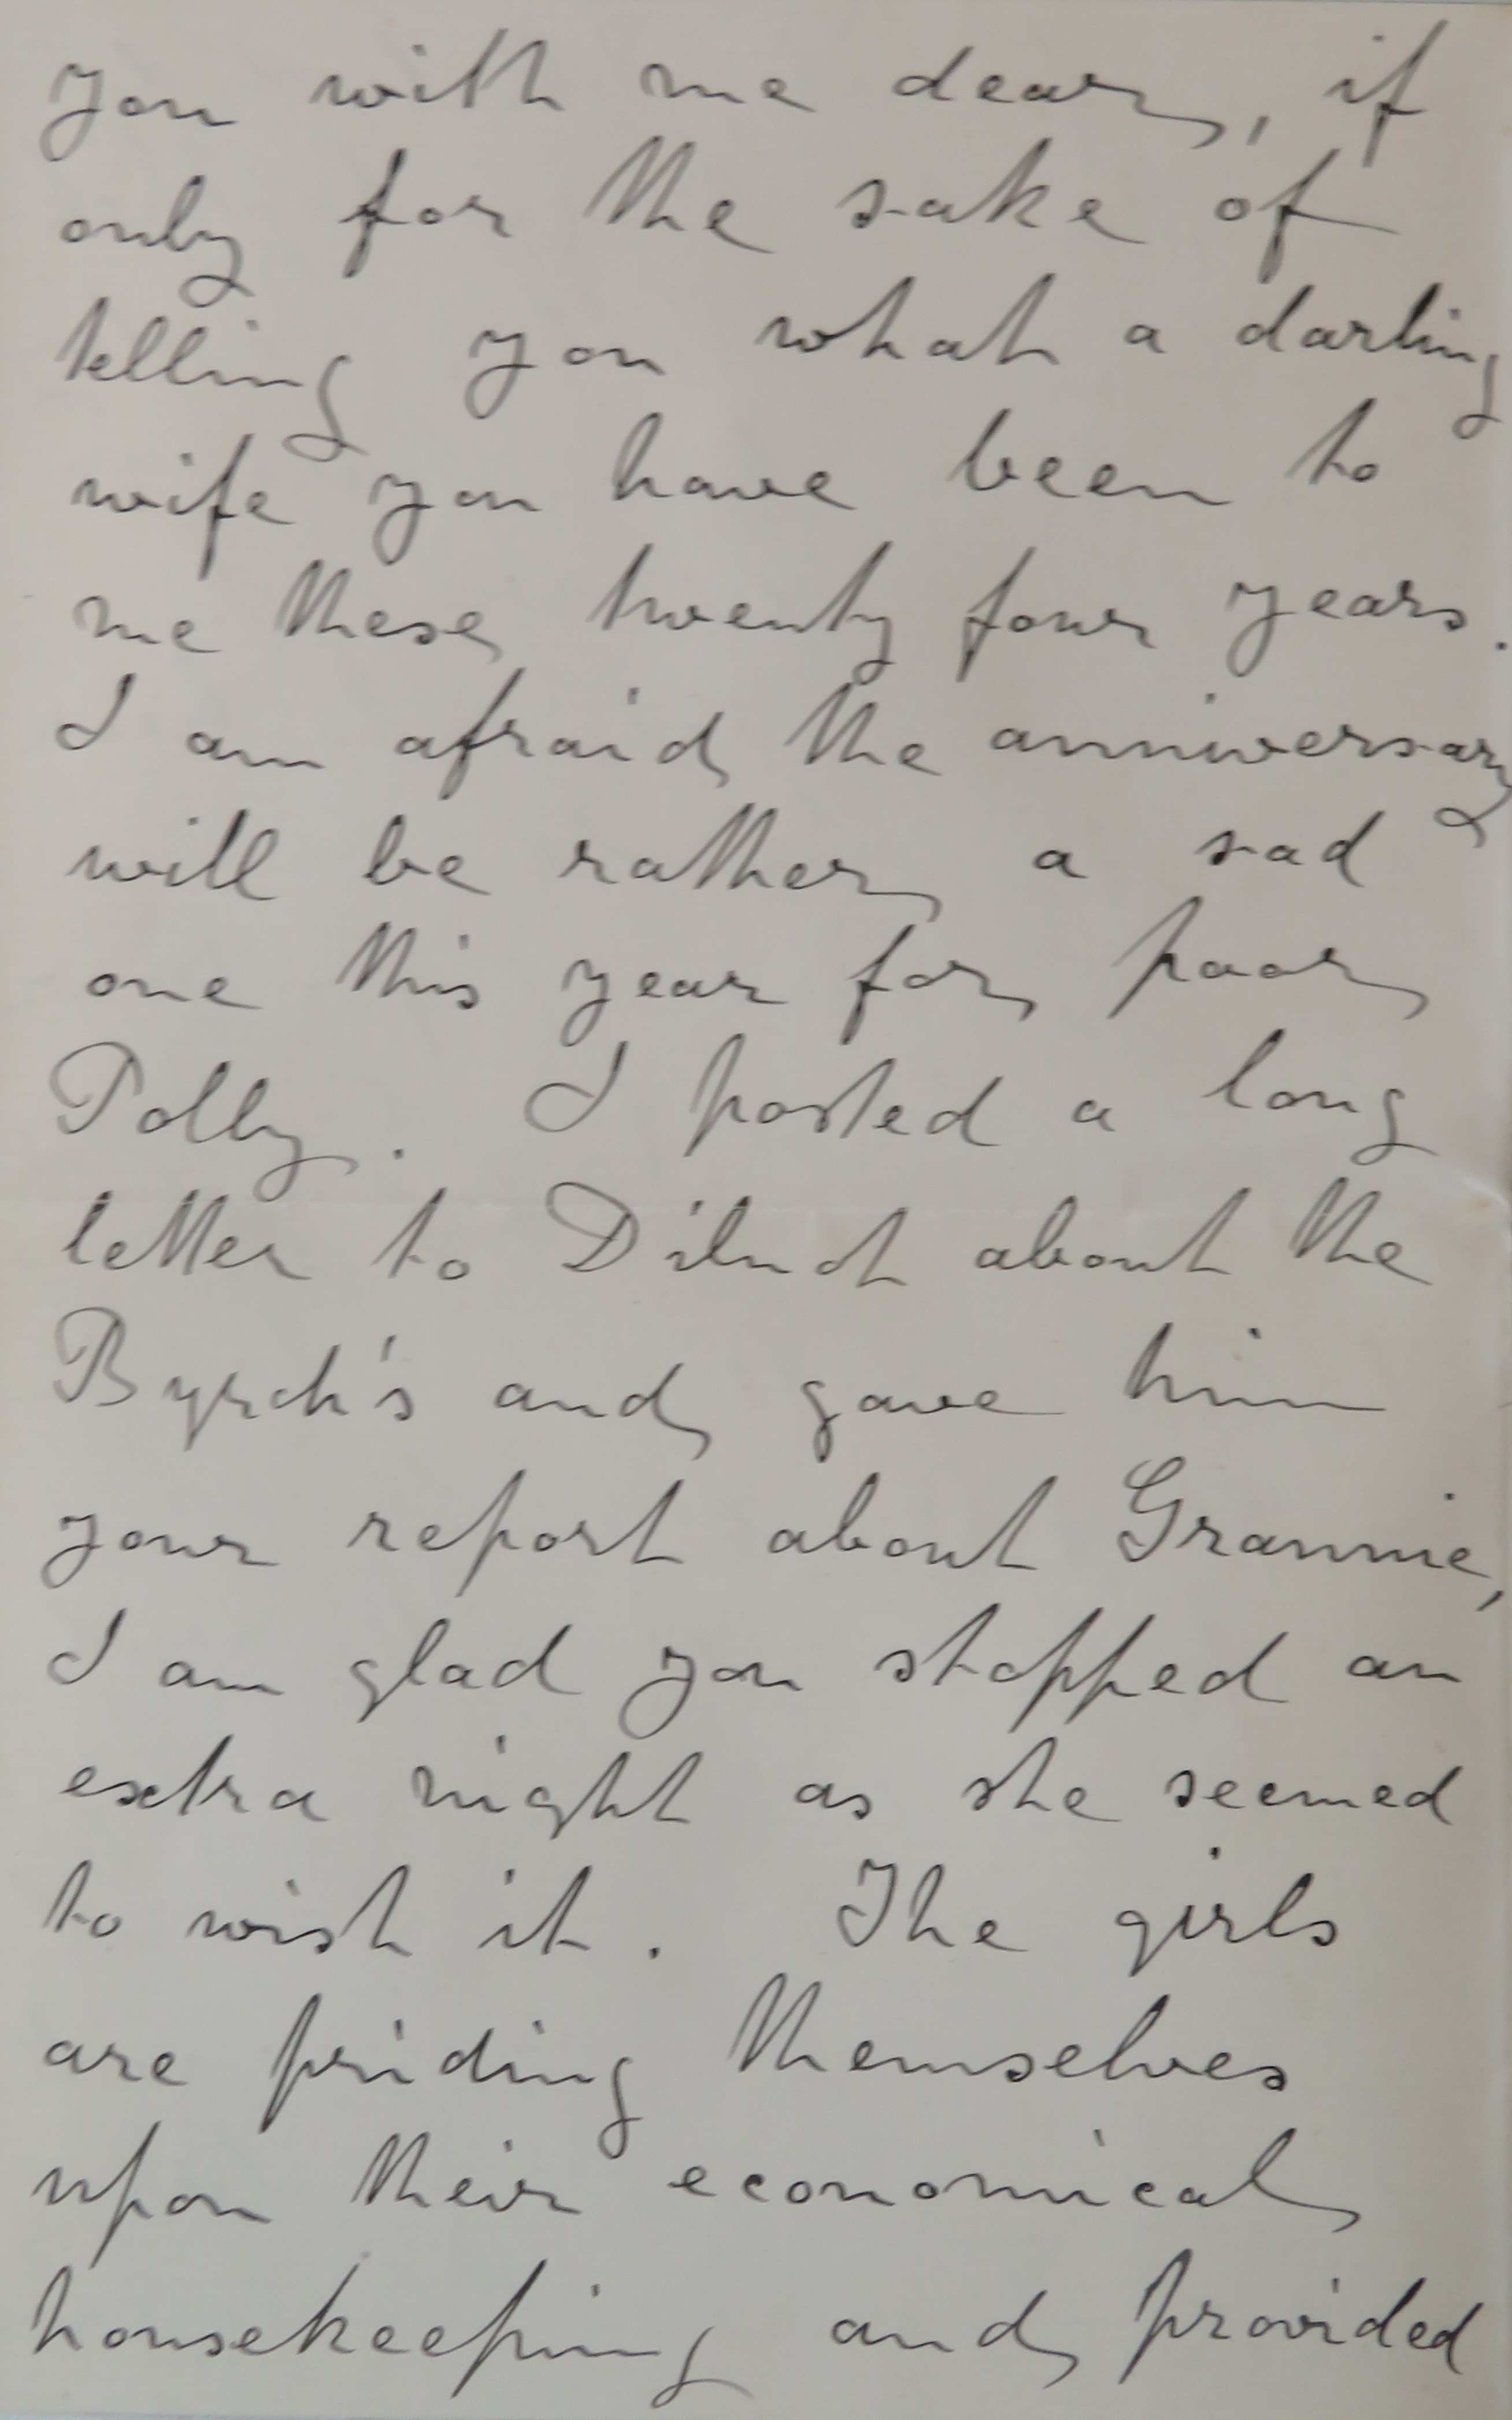 you with me dear, if
only for the sake of
telling you what a darling
wife you have been to
me these twenty four years.
I am afraid the anniversary
will be rather a sad
one this year for poor
Polly. I posted a long
letter to about the
and gave him
your report about Grannie,
I am glad you stopped an
extra night as she seemed
to wish it. The girls
are priding themselves
upon their economical
housekeeping and provided